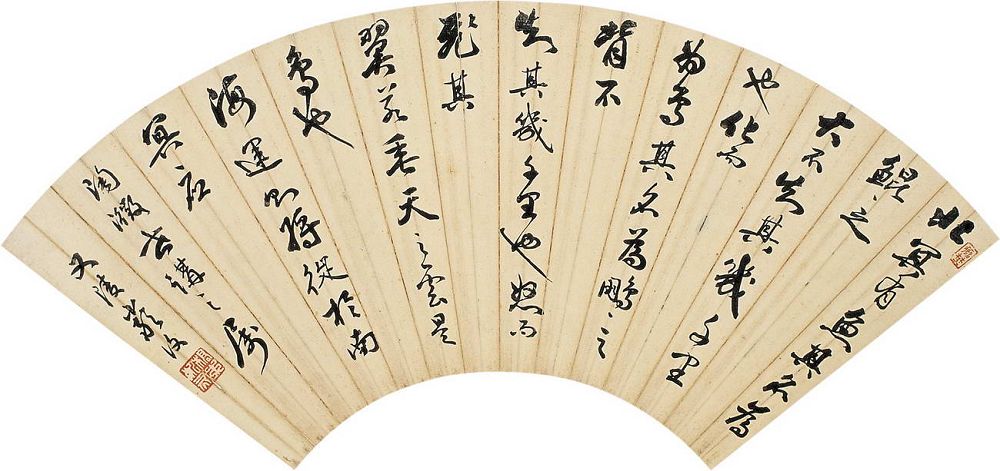 北冥有魚其名為
鯤〻之
大不知其幾千里
也化而
為鳥其名為鵬〻之
背不
知其幾千里也怒而
飛其
翼若垂天之雲是
鳥也
海運則將徙於南
冥應
世講之屬
又陵嚴復